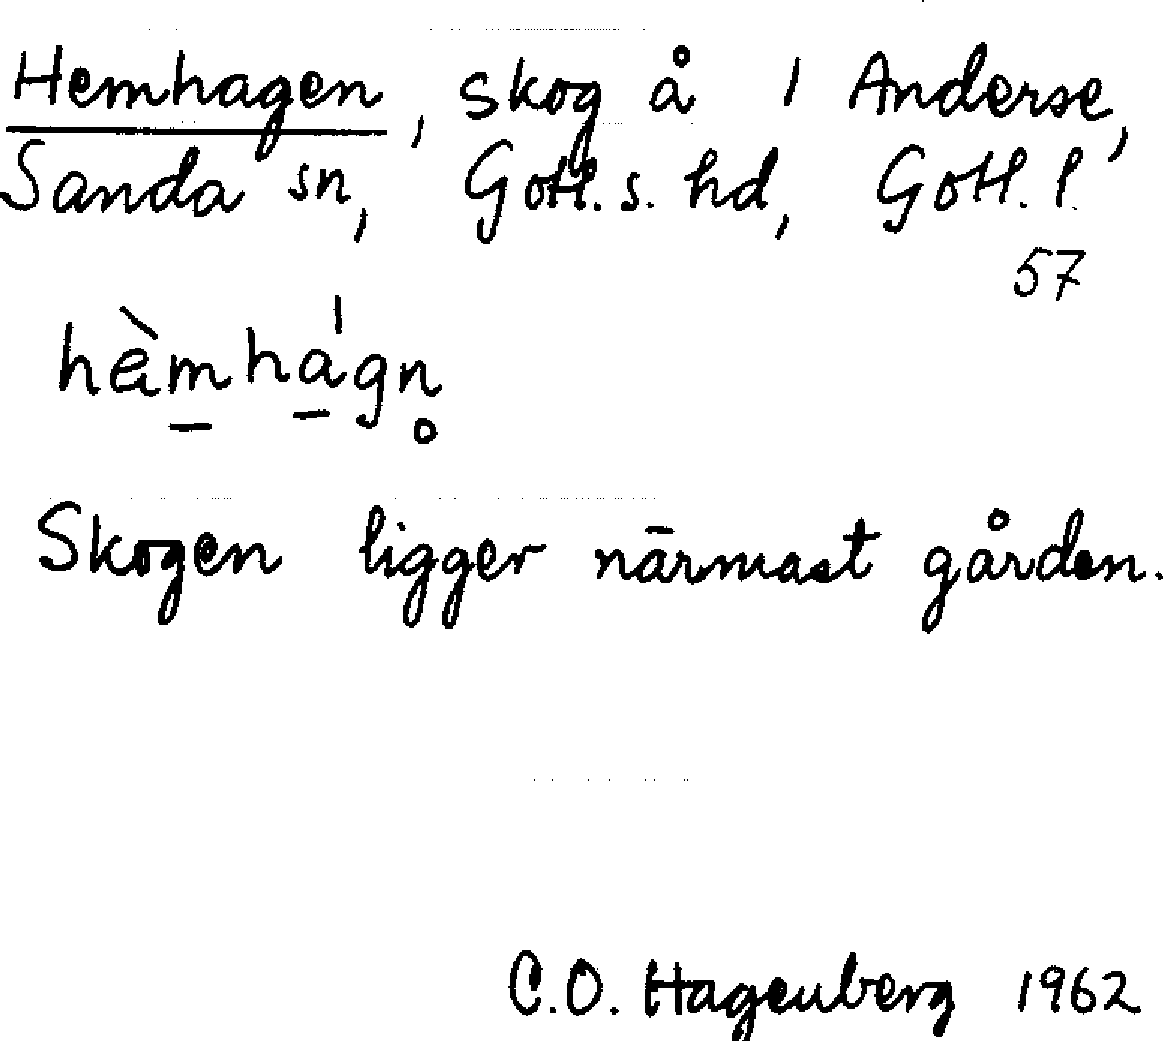 Hemhagen, skog å 1 Anderse,
Sanda sn, Gotl. s. hd, Gotl. l.
57
hèmhágn̥
Skogen ligger närmast gården.
C.O. Hagenberg 1962